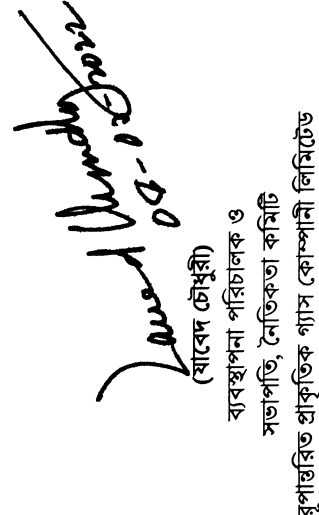 (যাবেদ চৌধুরী)
ব্যবস্থাপনা পরিচালক ও
সভাপতি, নৈতিকতা কমিটি
রূপান্তরিত প্রাকৃতিক গ্যাস কোম্পানী লিমিটেড